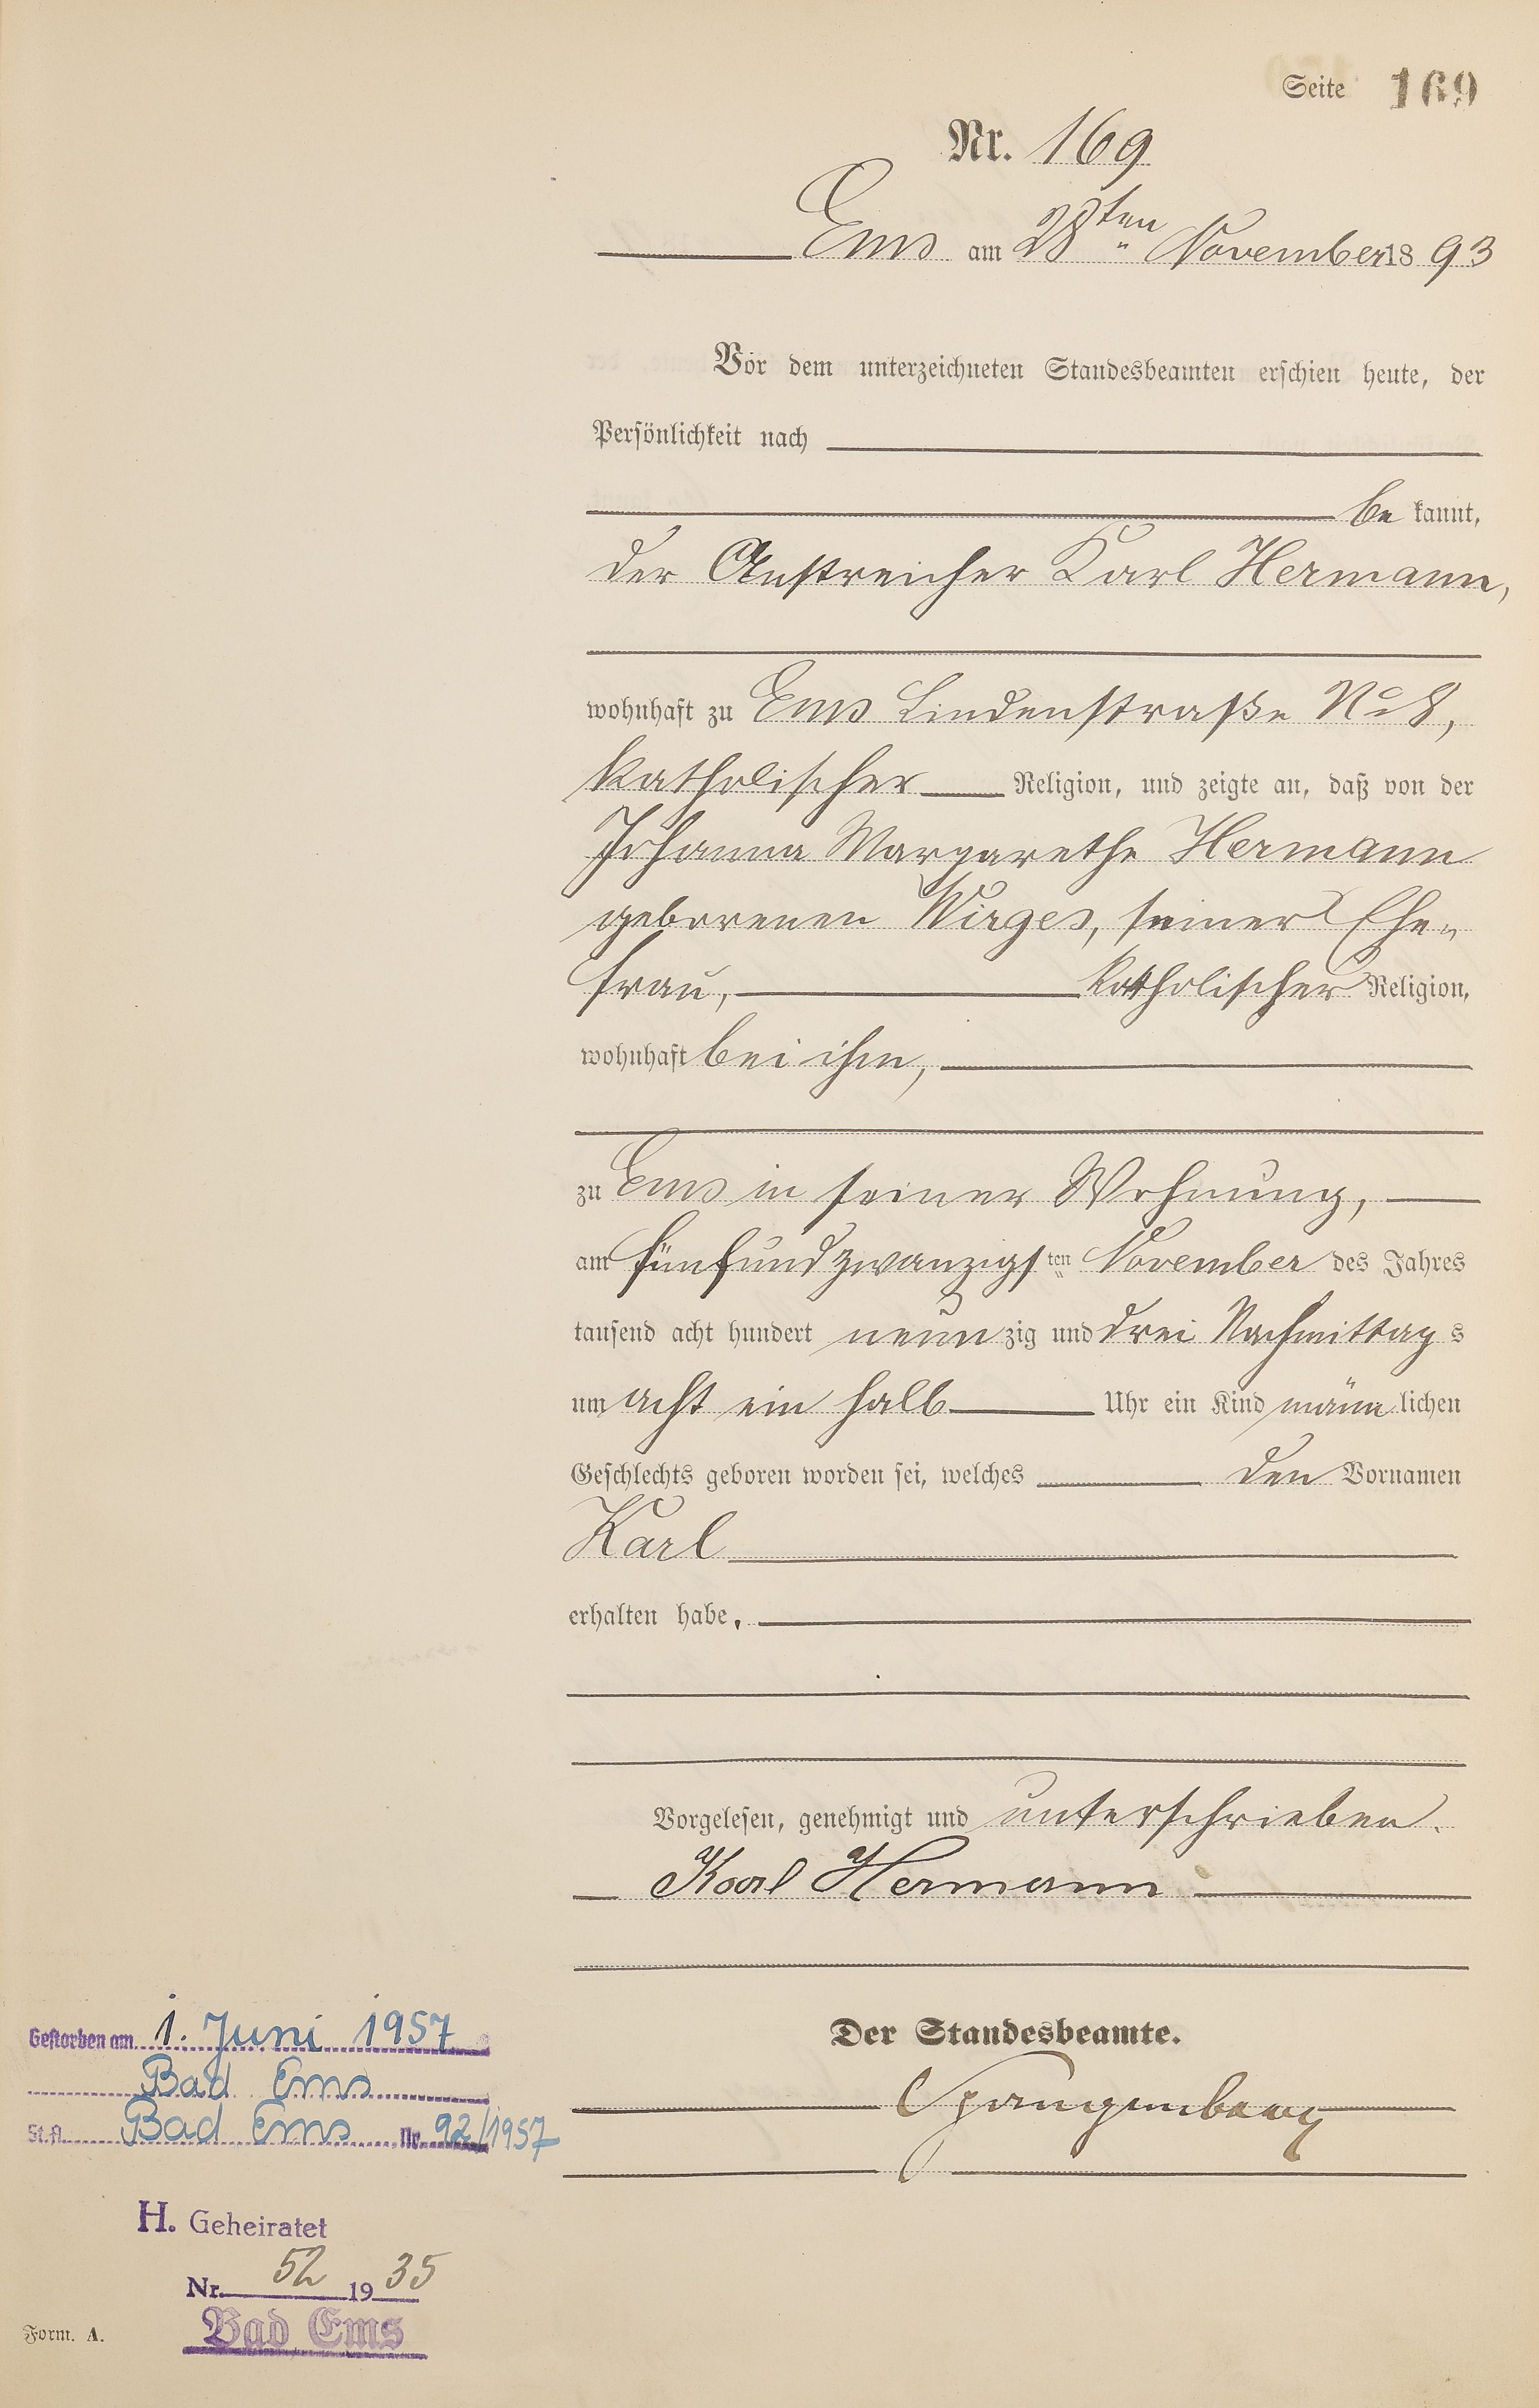 Seite 169
Nr. 169
Ems am 28ten November 1893
Vor dem unterzeichneten Standesbeamten erschien heute, der
Persönlichkeit nach
bekannt,
der Anstreicher Karl Hermann,
wohnhaft zu Ems Lindenstraße No 8,
katholischer Religion, und zeigte an, daß von der
Johanna Margarethe Hermann
geborenen Wirges, seiner Ehe„
frau, katholischer Religion,
wohnhaft bei ihm,
zu Ems in seiner Wohnung,
am fünfundzwanzigsten November des Jahres
tausend acht hundert neunzig und drei Nachmittags
um acht ein halb Uhr ein Kind männlichen
Geschlechts geboren worden sei, welches den Vornamen
Karl
erhalten habe.
Vorgelesen, genehmigt und unterschrieben.
Karl Hermann
Der Standesbeamte.
Spangenberg
Gestorben am 1. Juni 1957
Bad Ems
St.A. Bad Ems Nr. 92/1957
H. Geheiratet
Nr. 52 1935
Bad Ems
Form. A.